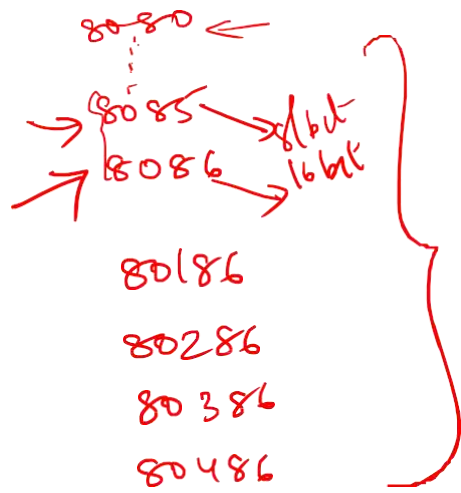 8080
8085 8bit
8086 16 bit
80186
80286
80386
80486